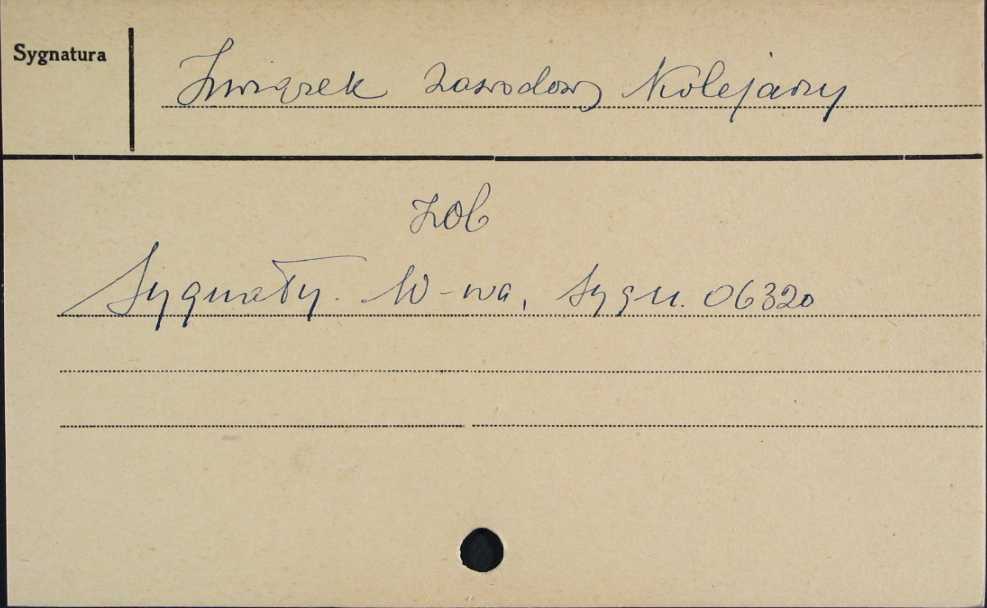 Sygnatura
Związek zawodowy Kolejarzy
zob
Sygnały. W-wa, Sygn. 06320